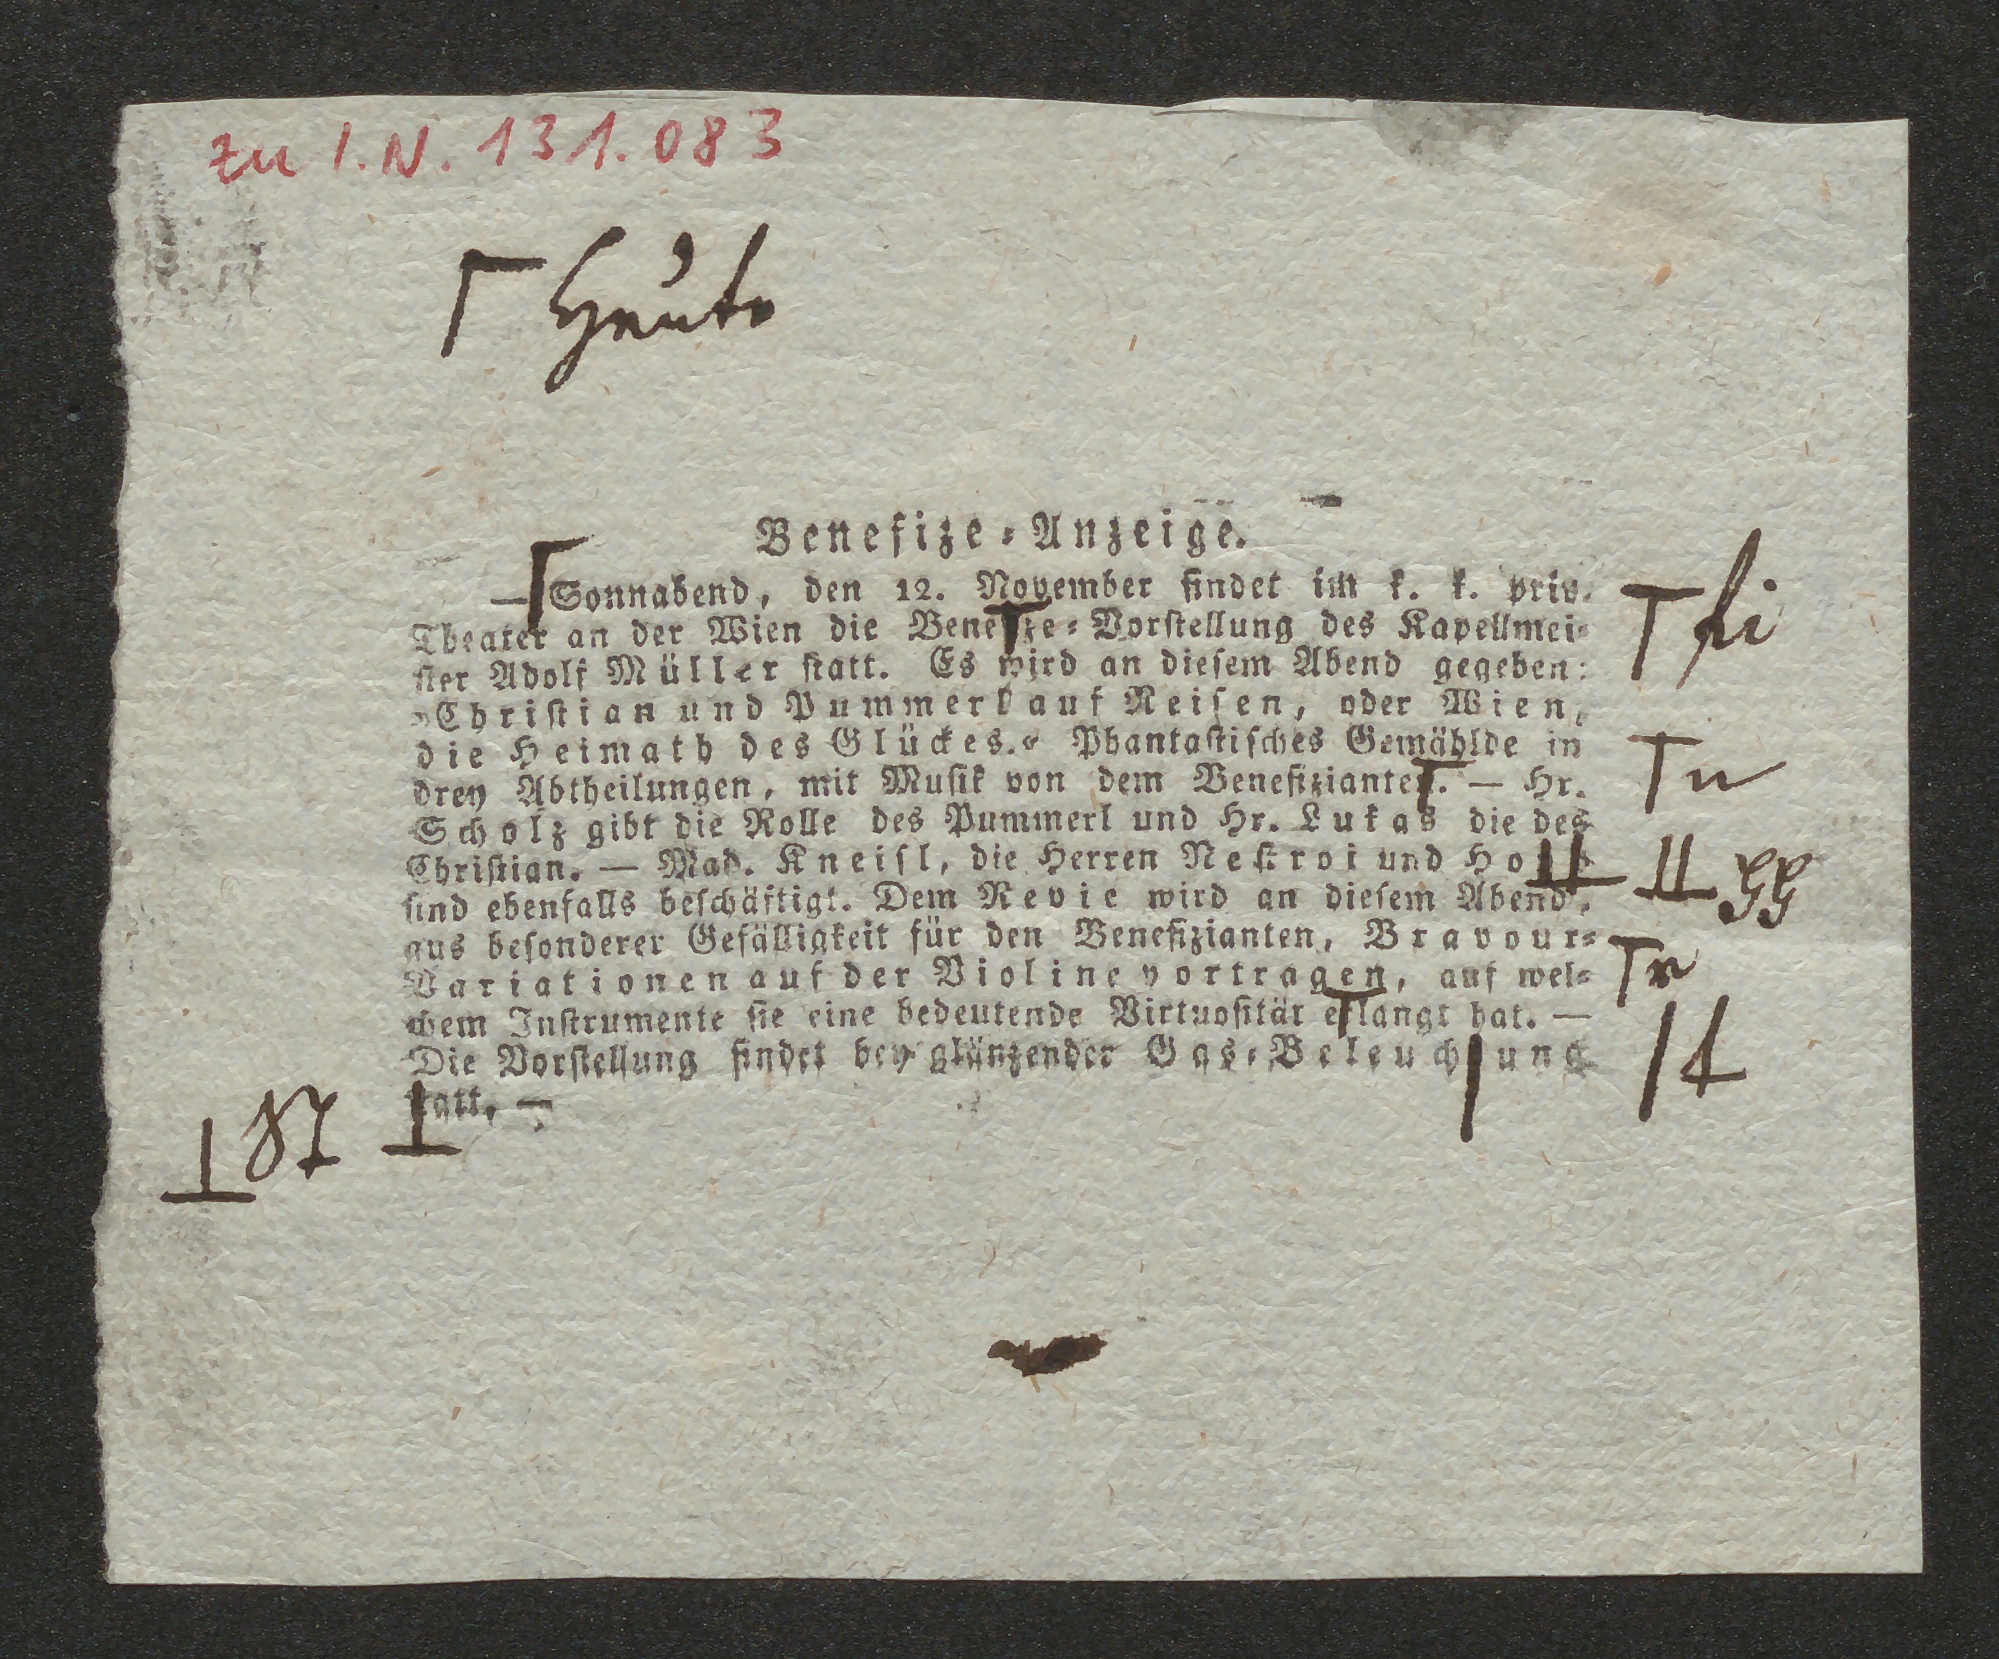 zu I.N. 131.083
Heute
Benefize-Anzeige.
— Sonnabend, den 12. November findet im k. k. priv.
Theater an der Wien die Benefize-Vorstellung des Kapellmei-
ster Adolf Müller statt. Es wird an diesem Abend gegeben:
»Christian und Pummerl auf Reisen, oder Wien,
die Heimath des Glückes.« Phantastisches Gemählde in
drey Abtheilungen, mit Musik von dem Benefizianten. — Hr.
Scholz gibt die Rolle des Pummerl und Hr. Lukas die des
Christian. — Mad. Kneisl, die Herren Nestroi und
sind ebenfalls beschäftigt. Dem Revie wird an diesem Abend,
aus besonderer Gefälligkeit für den Benefizianten, Bravour-
Variationen auf der Violine vortragen, auf wel-
chem Instrumente sie eine bedeutende Virtuosität erlangt hat. —
Die Vorstellung findet bey glänzender Gas-Beleuchtung
statt. —
fi
n
gg
r
t
st